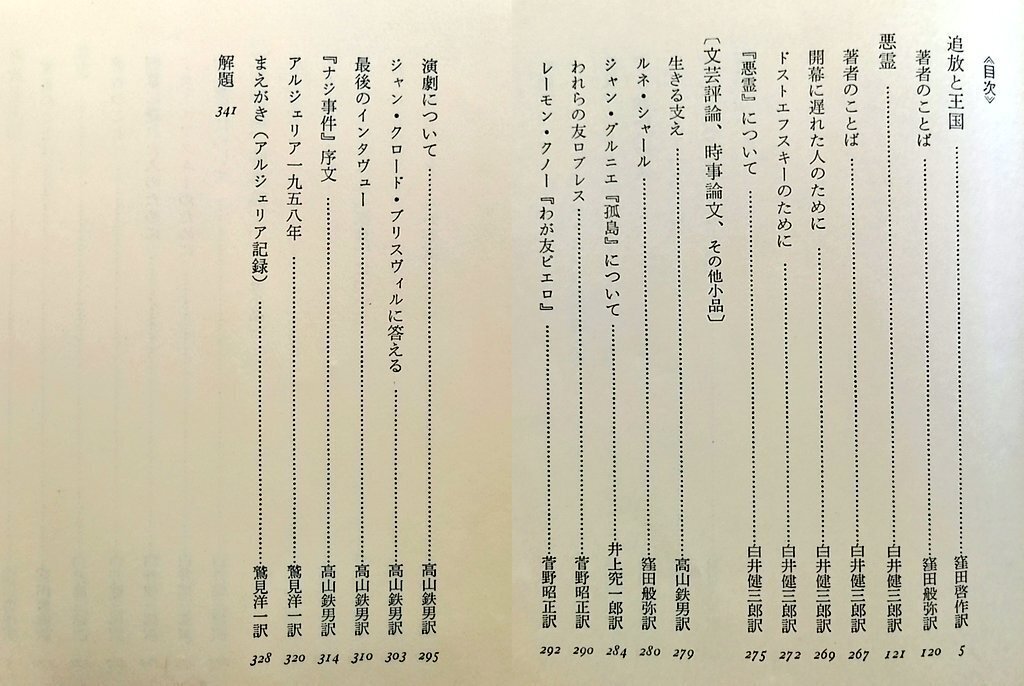 《目次》
追放と王国……窪田啓作訳 5
著者のことば……窪田般弥訳 120
悪霊……白井健三郎訳 121
著者のことば……白井健三郎訳 267
開幕に遅れた人のために……白井健三郎訳 269
ドストエフスキーのために……白井健三郎訳 272
『悪霊』について……白井健三郎訳 275
〔文芸評論、時事論文、その他小品〕
生きる支え……高山鉄男訳 279
ルネ・シャール……窪田般弥訳 280
ジャン・グルニエ『孤島』について……井上究一郎訳 284
われらの友ロブレス……菅野昭正訳 290
レーモン・クノー『わが友ピエロ』……菅野昭正訳 292
演劇について……高山鉄男訳 295
ジャン・クロード・ブリスヴィルに答える……高山鉄男訳 303
最後のインタヴュー……高山鉄男訳 310
『ナジ事件』序文……高山鉄男訳 314
アルジェリア一九五八年……鷲見洋一訳 320
まえがき（アルジェリア記録）……鷲見洋一訳 328
解題 341